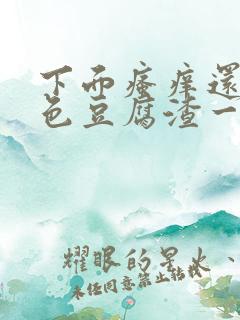 下面瘙痒還
色豆腐渣一
耀眼的星火、
未经同意禁止转载